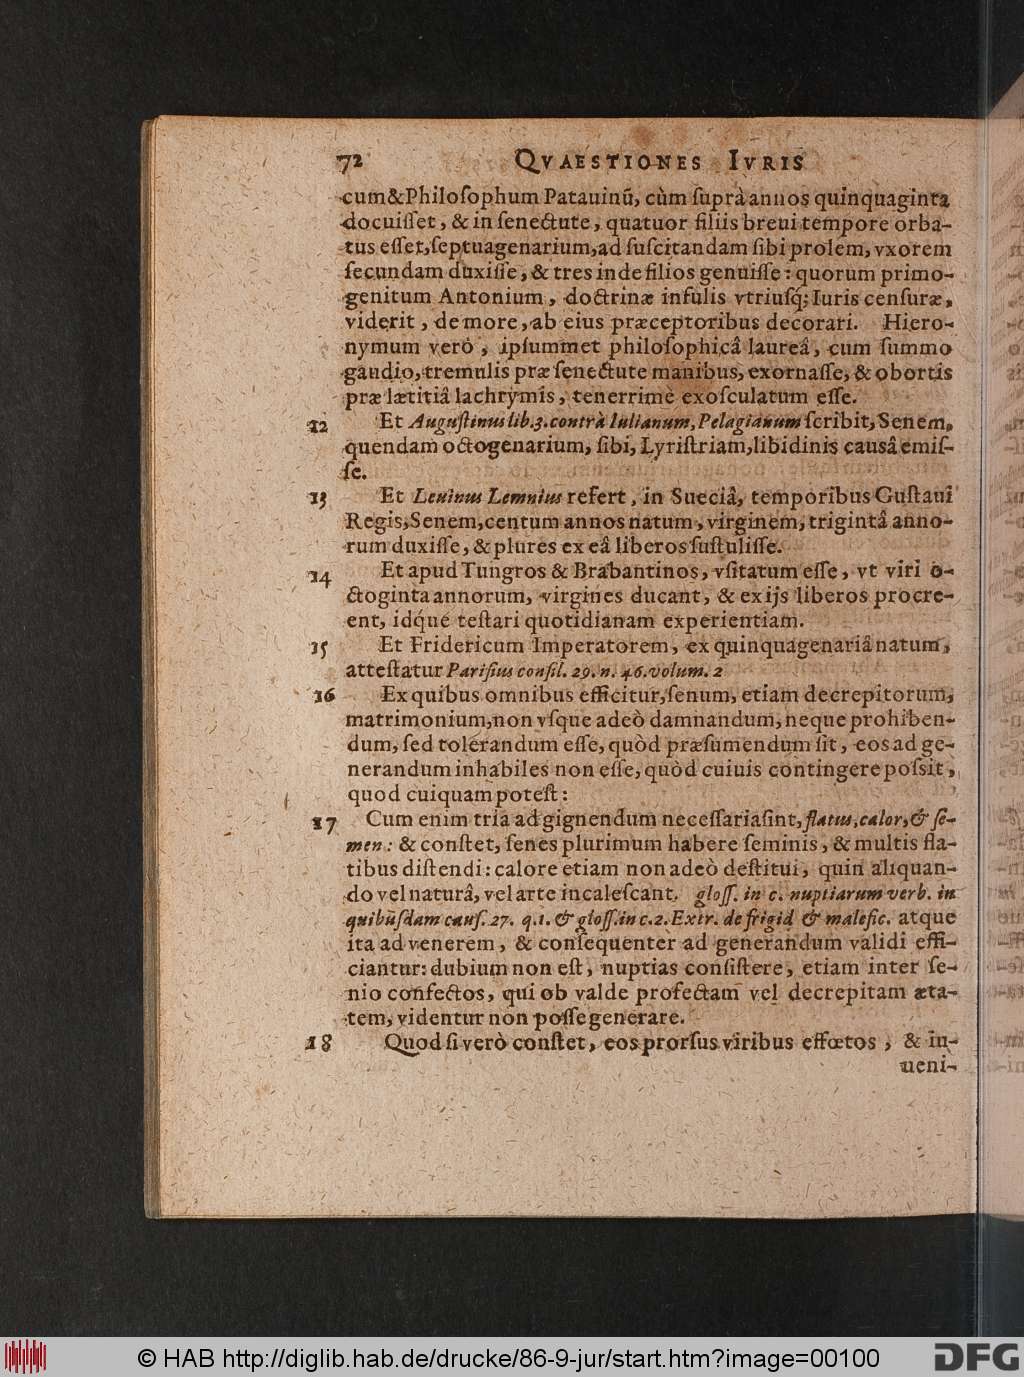 72 QVAESTIONES IVRIS
cum&Philoſophum Patauinũ, cùm ſuprà annos quinquaginta
docuiſſet, & in ſenectute, quatuor filiis breui tempore orba-
tus eſſet, ſeptuagenarium, ad ſuſcitandam ſibi prolem, vxorem
ſecundam duxiſſe, & tres inde filios genuiſſe: quorum primo-
genitum Antonium, doctrinæ infulis vtriuſq́; Iuris cenſuræ,
viderit, de more, ab eius præceptoribus decorari. Hiero-
nymum verò, ipſummet philoſophicâ laureâ, cum ſummo
gaudio, tremulis præ ſenectute manibus, exornaſſe, & obortis
præ lætitiâ lachrymis, tenerrimè exoſculatum eſſe.
12 Et Auguſtinus lib.3. contrà Iulianum, Pelagianum ſcribit, Senem,
quendam octogenarium, ſibi, Lyriſtriam, libidinis causâ emiſ-
ſe.
13 Et Leuinus Lemnius refert, in Sueciâ, temporibus Guſtaui
Regis, Senem, centum annos natum, virginem, trigintâ anno-
rum duxiſſe, & plures ex eâ liberos ſuſtuliſſe.
14 Et apud Tungros & Brabantinos, vſitatum eſſe, vt viri o-
ctoginta annorum, virgines ducant, & ex ijs liberos procre-
ent, idq́ue teſtari quotidianam experientiam.
15 Et Fridericum Imperatorem, ex quinquagenariâ natum,
atteſtatur Pariſius conſil. 29. n. 46. volum. 2
16 Ex quibus omnibus efficitur, ſenum, etiam decrepitorum,
matrimonium, non vſque adeò damnandum, neque prohiben-
dum, ſed tolerandum eſſe, quòd præſumendum ſit, eos ad ge-
nerandum inhabiles non eſſe, quòd cuiuis contingere poſsit,
quod cuiquam poteſt:
17 Cum enim tria ad gignendum neceſſaria ſint, flatus, calor, & ſe-
men: & conſtet, ſenes plurimum habere ſeminis, & multis fla-
tibus diſtendi: calore etiam non adeò deſtitui, quin aliquan-
do vel naturâ, vel arte incaleſcant. gloſſ. in c. nuptiarum verb. in
quibuſdam cauſ. 27. q. 1. & gloſſ. in c. 2. Extr. de frigid & malefic. atque
ita ad venerem, & conſequenter ad generandum validi effi-
ciantur: dubium non eſt, nuptias conſiſtere, etiam inter ſe-
nio confectos, qui ob valde profectam vel decrepitam æta-
tem, videntur non poſſe generare.
18 Quod ſi verò conſtet, eos prorſus viribus effœtos, & in-
ueni-
© HAB http://diglib.hab.de/drucke/86-9-jur/start.htm?image=00100
DFG